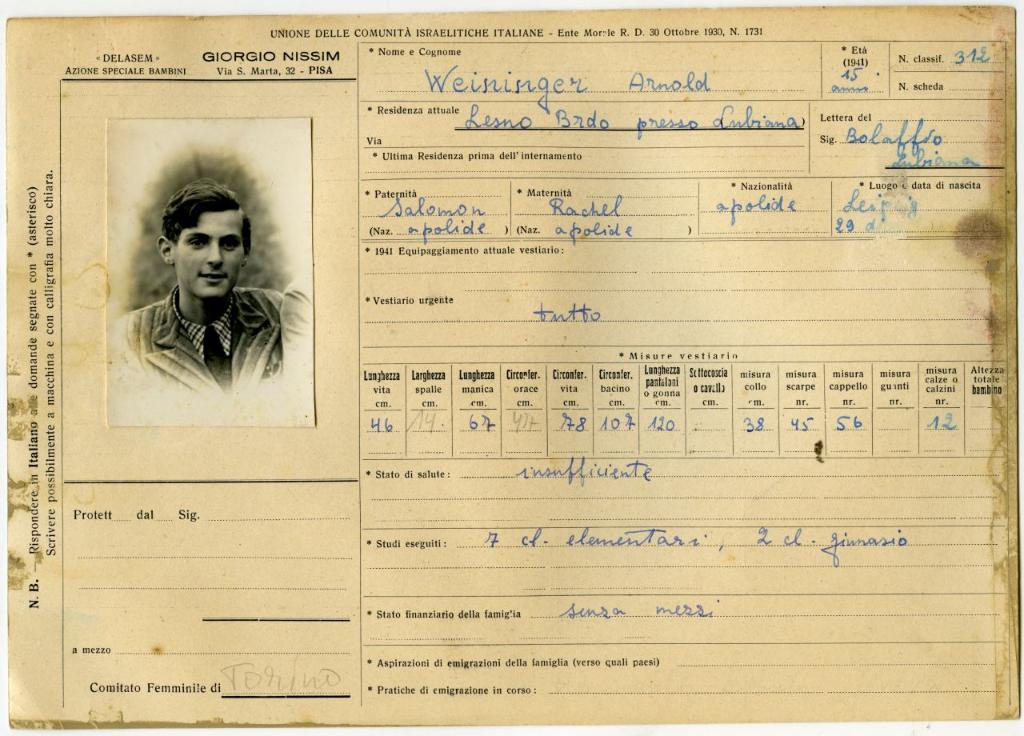 UNIONE DELLE COMUNITÀ ISRAELITICHE ITALIANE - Ente Morale R. D. 30 Ottobre 1930, N. 1731
« DELASEM »
AZIONE SPECIALE BAMBINI
GIORGIO NISSIM
Via S. Marta, 32 - PISA
* Nome e Cognome
Weininger Arnold
* Età
(1941)
15
anni
N. classif. 312
N. scheda
* Residenza attuale Lesno Brdo presso Lubiana
Via
* Ultima Residenza prima dell'internamento
Lettera del
Sig. Bolaffio
Lubiana
* Paternità
Salomon
(Naz. apolide )
* Maternità
Rachel
(Naz. apolide )
* Nazionalità
apolide
* Luogo e data di nascita
29
* 1941 Equipaggiamento attuale vestiario:
* Vestiario urgente
tutto
* Misure vestiario
Lunghezza vita cm. 46
Larghezza spalle cm.
Lunghezza manica cm. 67
Circonfer. orace cm.
Circonfer. vita cm. 78
Circonfer. bacino cm. 107
Lunghezza pantaloni o gonna cm. 120
Sottocoscia o cavallo cm.
misura collo cm. 38
misura scarpe nr. 45
misura cappello nr. 56
misura guanti nr.
misura calze o calzini nr. 12
Altezza totale bambino
* Stato di salute: insufficiente
* Studi eseguiti: 7 cl. elementari, 2 cl. ginnasio
* Stato finanziario della famiglia senza mezzi
* Aspirazioni di emigrazioni della famiglia (verso quali paesi)
* Pratiche di emigrazione in corso:
Protett dal Sig.
a mezzo
Comitato Femminile di Torino
N. B. — Rispondere in Italiano alle domande segnate con * (asterisco)
Scrivere possibilmente a macchina e con calligrafia molto chiara.